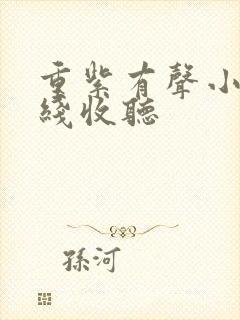 重紫有聲小
綫收聽
孫河